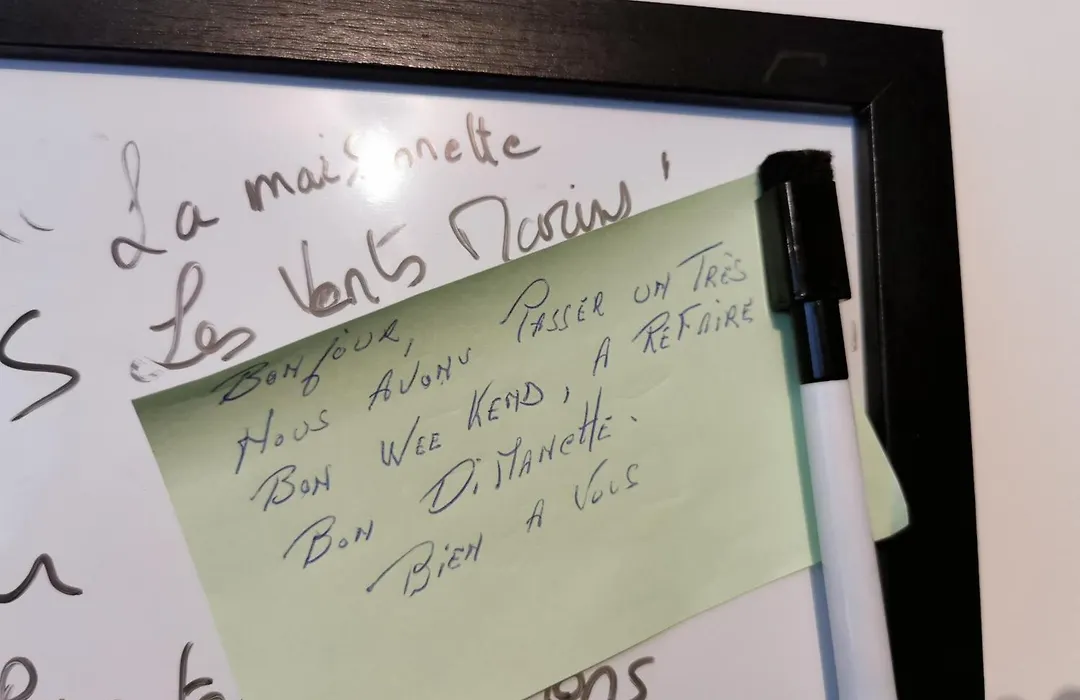 La maisonnette
Les Vents Marins'
S
BONJOUR,
NOUS AVONS PASSER UN TRÈS
BON WEE KEND, A REFAIRE
BON DIMANCHE.
BIEN A VOUS